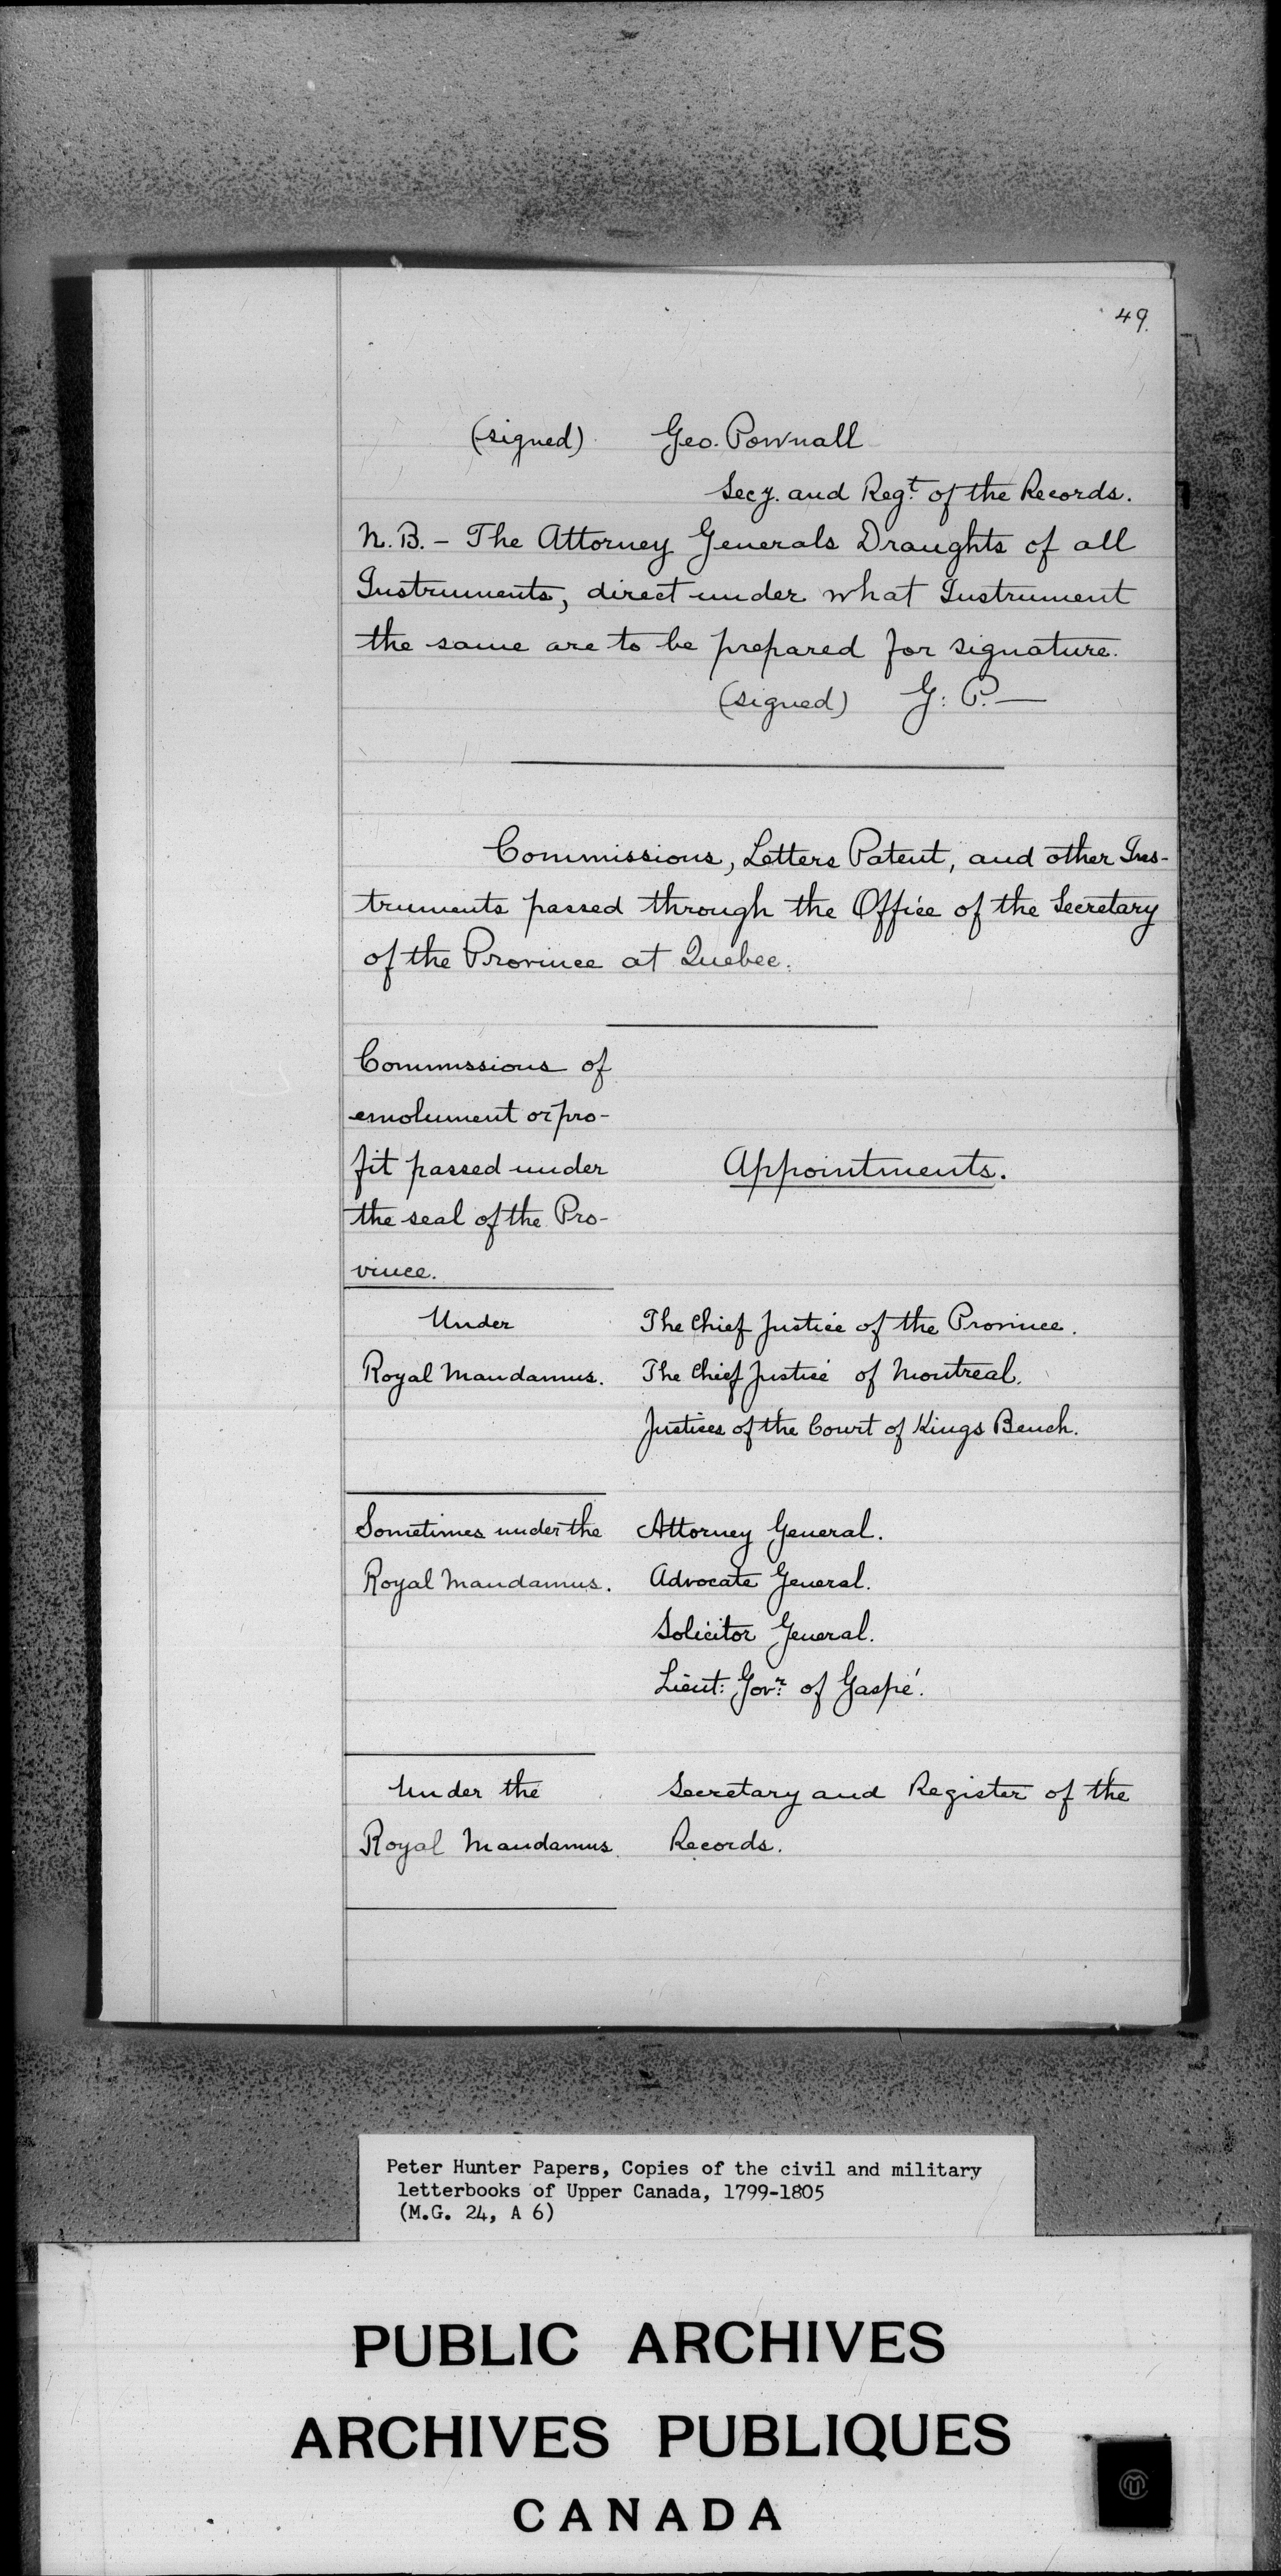 49.
(signed) Geo. Pownall
Secy. and Regt. of the Records.
N.B. - The Attorney Generals Draughts of all
Instruments, direct under what Instrument
the same are to be prepared for signature.
(signed) G: P. —
Commissions, Letters Patent, and other Ins-
truments passed through the Office of the Secretary
of the Province at Quebec.
Commissions of
emolument or pro-
fit passed under
the seal of the Pro-
vince.
Appointments.
Under The Chief Justice of the Province.
Royal Mandamus. The Chief Justice of Montreal.
Justices of the Court of Kings Bench.
Sometimes under the Attorney General.
Royal Mandamus. Advocate General.
Solicitor General.
Lieut: Govr: of Gaspé.
Under the Secretary and Register of the
Royal Mandamus. Records.
Peter Hunter Papers, Copies of the civil and military
letterbooks of Upper Canada, 1799-1805
(M.G. 24, A 6)
PUBLIC ARCHIVES
ARCHIVES PUBLIQUES
CANADA